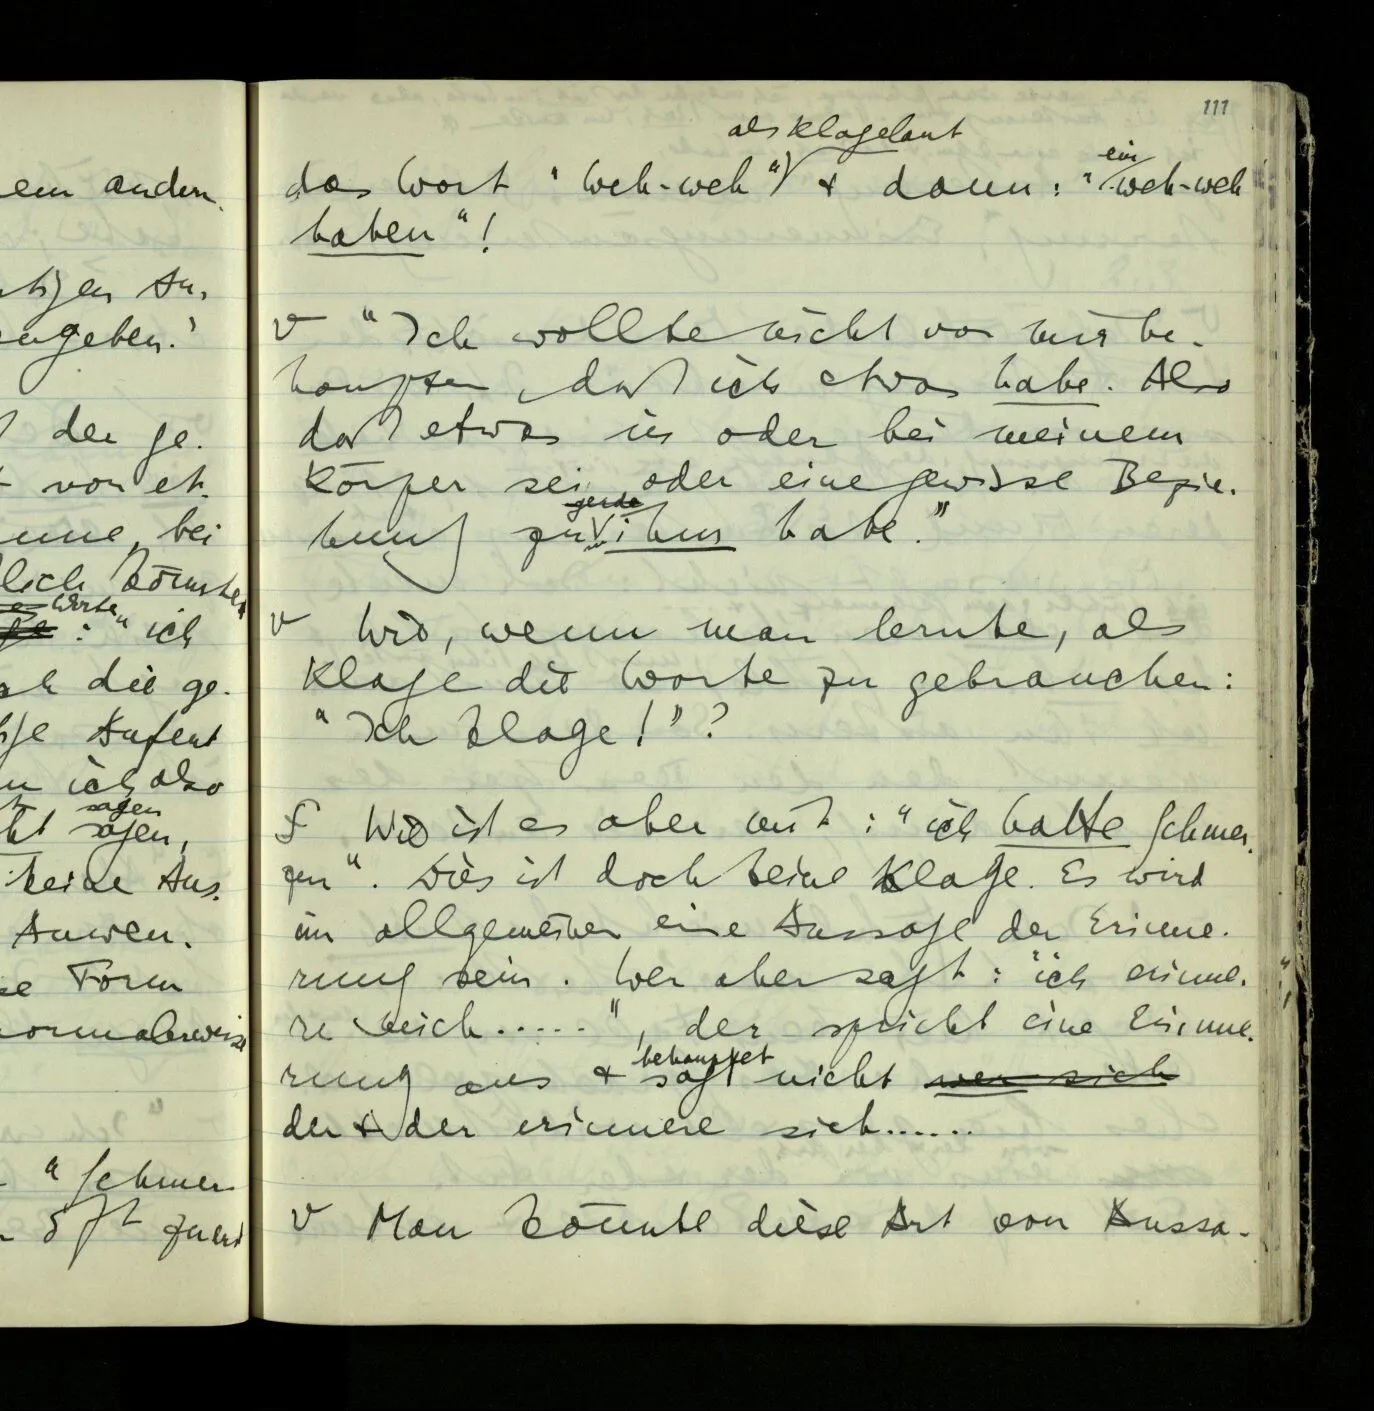 111
als Klagelaut
das Wort "Weh-weh" & dann: "ein Weh-weh
haben"!
V "Ich wollte nicht von mir be-
haupten, daß ich etwas habe. Also
daß etwas in oder bei meinem
Körper sei, oder eine gewisse Bezie-
gerade
hung zu ihm habe."
V Wie, wenn man lernte, als
Klage die Worte zu gebrauchen:
"Ich klage!"?
S Wie ist es aber mit: "ich hatte Schmer-
zen". Dies ist doch keine Klage. Es wird
im allgemeinen eine Aussage der Erinne-
rung sein. Wer aber sagt: "ich erinne-
re mich.....", der spricht eine Erinne-
behauptet
rung aus & sagt nicht wer sich
der & der erinnere sich......
V Man könnte diese Art von Aussa-
em andern.
tigen An-
angeben.'
der ge-
von et-
bei
lich könnten
Worte
: "ich
die ge-
Aufent
ich also
sagen
sagen,
keine Aus-
Anwen-
Form
normalerweise
" Schmer
oft zuerst